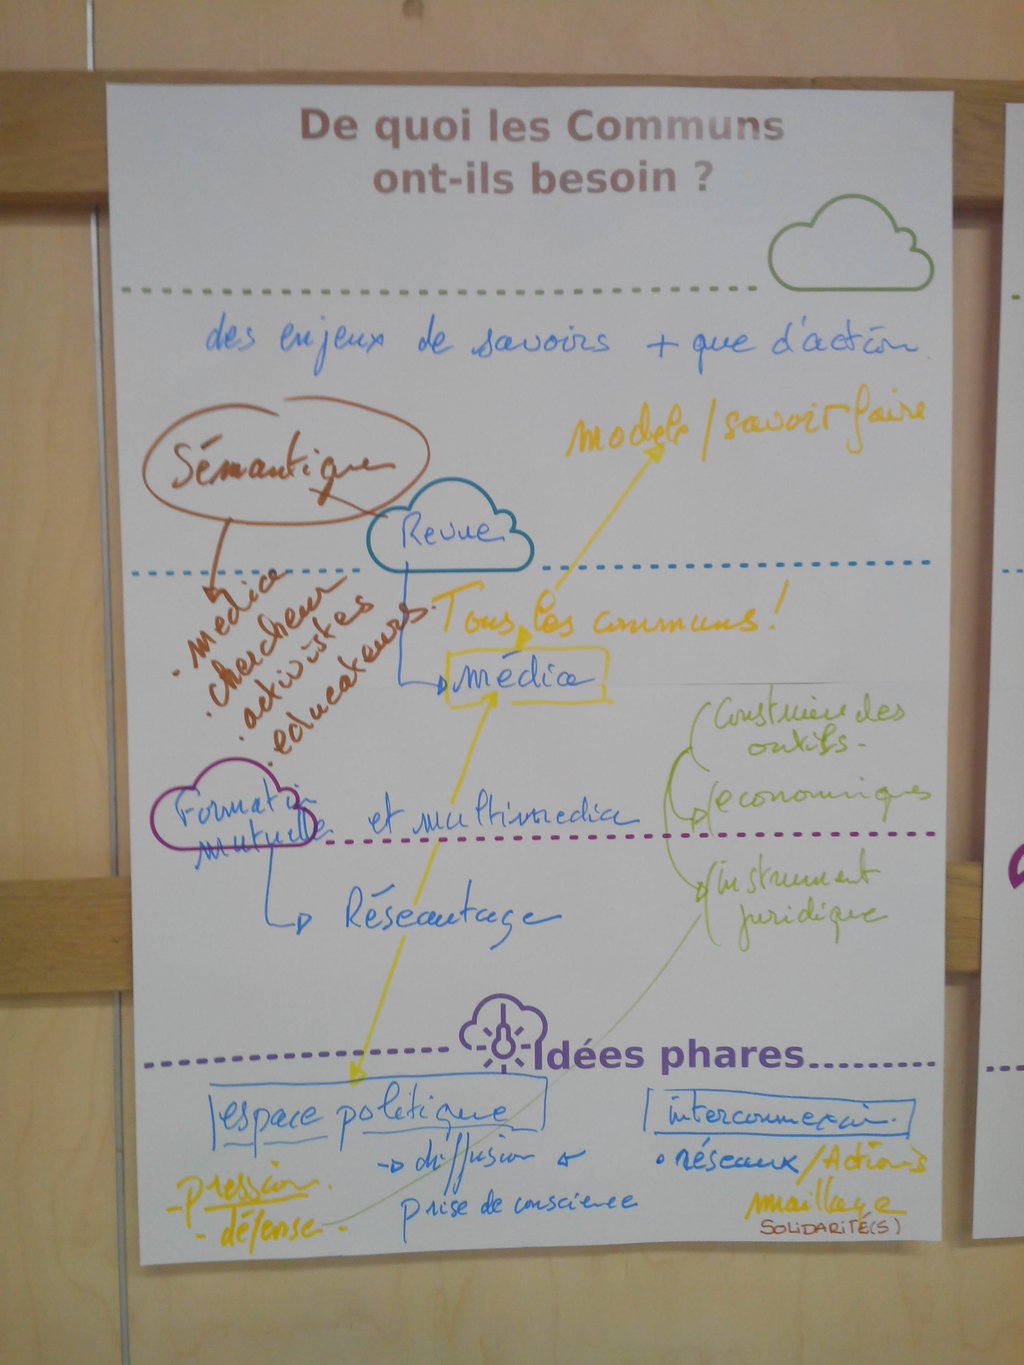 De quoi les Communs
ont-ils besoin ?
des enjeux de savoirs + que d'action
modele / savoir faire
Sémantique
Revue
. media
. chercheur
. activistes
. educateurs.
Tous les communs !
média
Construire des
outils -
economiques
Formation
mutuelle
et multimedia
instrument
juridique
Réseautage
Idées phares
espace politique
interconnexion.
-> diffusion
• réseaux / Actions
- pression.
prise de conscience
maillage
- défense -
SOLIDARITÉ(S)